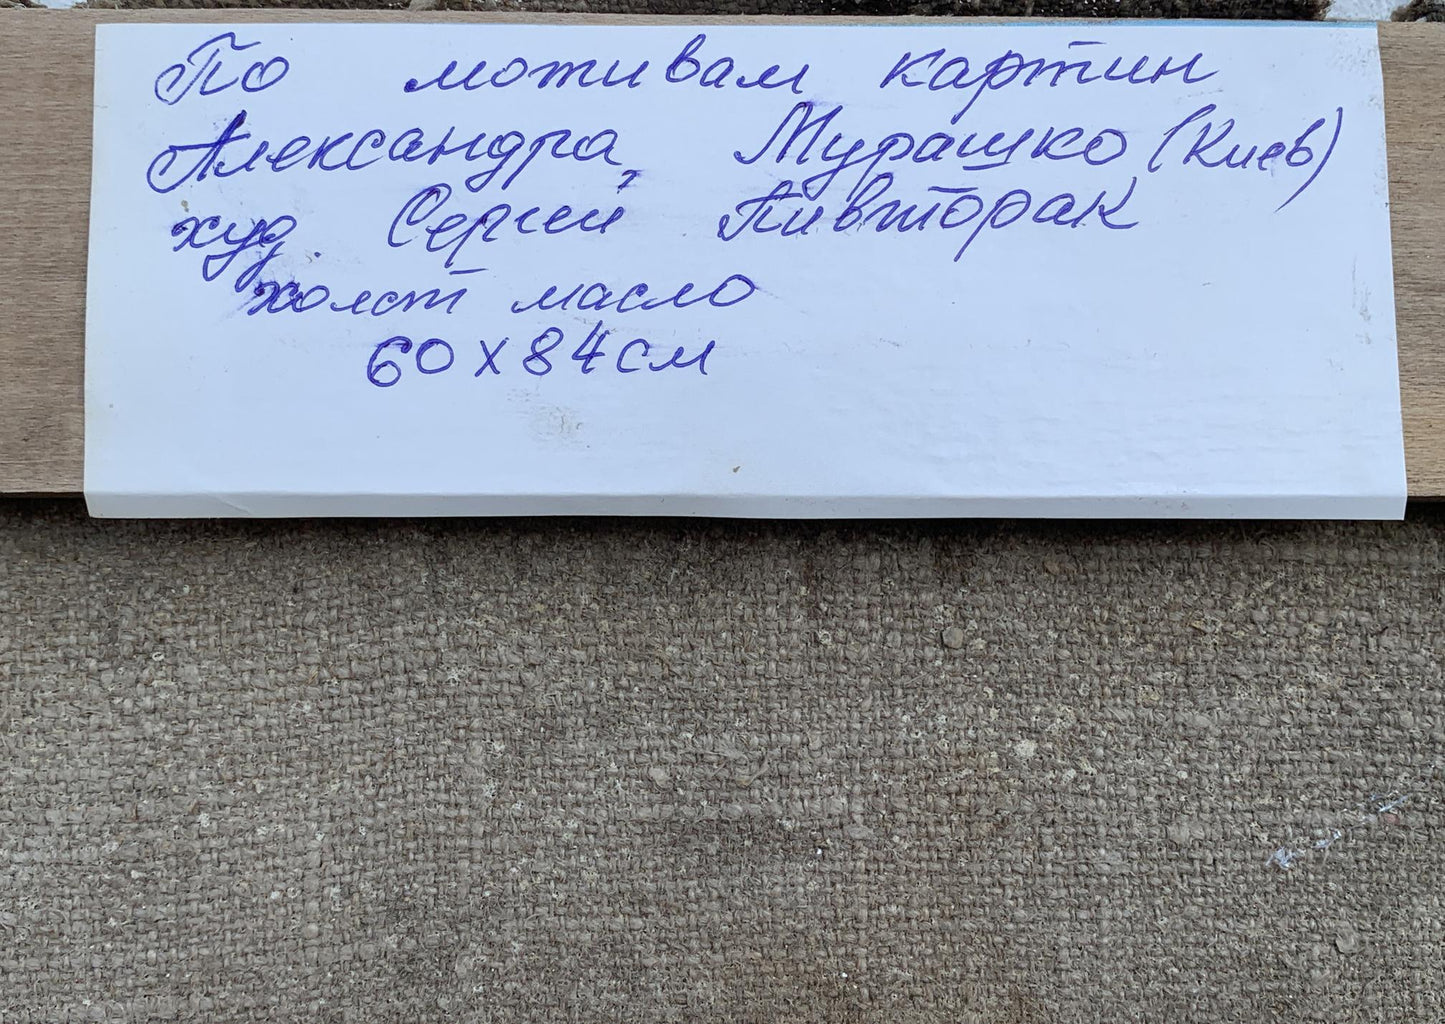 По мотивам картин
Александра, Мурашко (Киев)
худ. Сергей Пивторак
холст масло
60 х 84 см